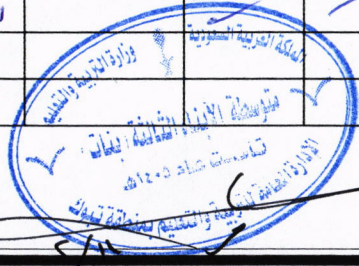 المملكة العربية السعودية
وزارة التربية والتعليم
متوسطة الأبناء الثالثة بنات
تأسست عام ١٤٠٥هـ
الإدارة العامة للتربية والتعليم بمنطقة تبوك